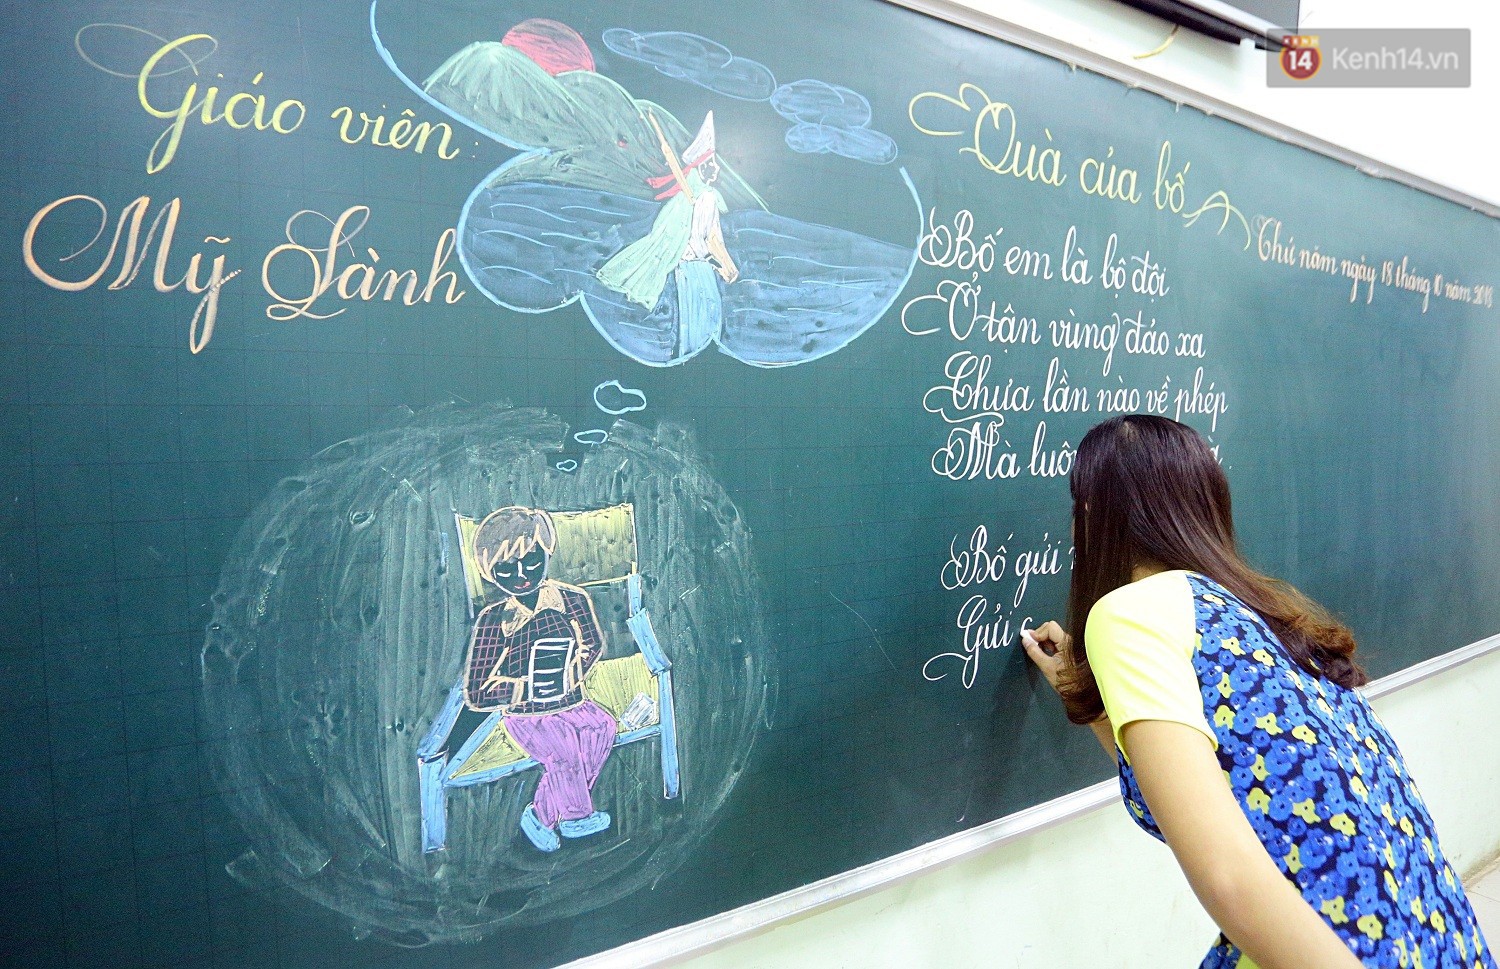 Giáo viên:
Mỹ Sành
Quà của bố
Thứ năm ngày 18 tháng 10 năm 2018
Bố em là bộ đội
Ở tận vùng đảo xa
Chưa lần nào về phép
Mà luôn
Bố gửi
Gửi
14 Kenh14.vn